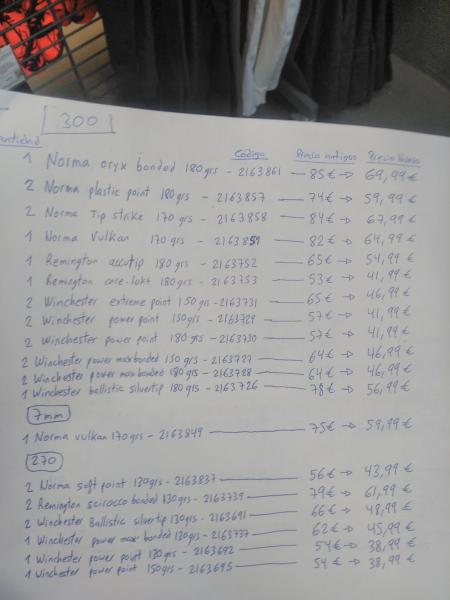 300
Cantidad Código Precio antiguo Precio
1 Norma oryx bonded 180grs - 2163861 85€ → 69,99€
2 Norma plastic point 180grs - 2163857 74€ → 59,99€
2 Norma Tip strike 170 grs - 2163858 84€ → 67,99€
1 Norma Vulkan 170 grs - 2163859 82€ → 64,99€
1 Remington accutip 180 grs - 2163752 65€ → 54,99€
1 Remington core-lokt 180grs - 2163753 53€ → 41,99€
2 Winchester extreme point 150grs - 2163731 65€ → 46,99€
2 Winchester power point 150grs - 2163729 57€ → 41,99€
2 Winchester power point 180 grs - 2163730 57€ → 41,99€
2 Winchester power max bonded 150 grs - 2163727 64€ → 46,99€
2 Winchester power max bonded 180grs - 2163728 64€ → 46,99€
1 Winchester ballistic silvertip 180grs - 2163726 78€ → 56,99€
7mm
1 Norma vulkan 170grs - 2163849 75€ → 59,99€
270
2 Norma soft point 130grs - 2163837 56€ → 43,99€
2 Remington scirocco bonded 130grs - 2163739 79€ → 61,99€
2 Winchester Ballistic silvertip 130grs - 2163691 66€ → 48,99€
1 Winchester power max bonded 130grs - 2163737 62€ → 45,99€
1 Winchester power point 130grs - 2163692 54€ → 38,99€
1 Winchester power point 150grs - 2163695 54€ → 38,99€